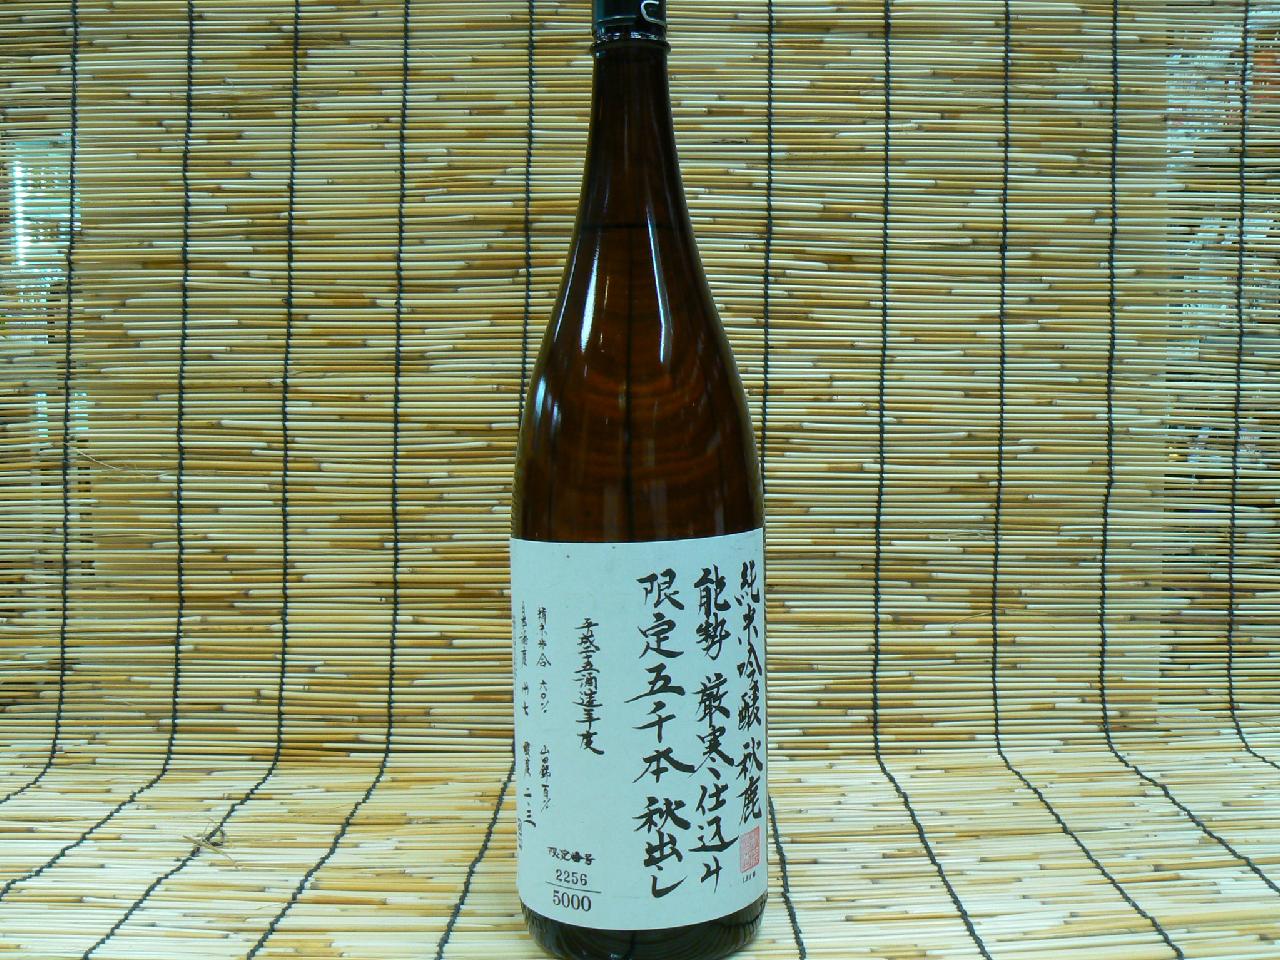 純米吟醸 秋鹿
能勢 厳寒仕込み
限定五千本 秋出し
平成二五酒造年度
精米歩合 六〇% 山田錦百%
日本酒度 卅七 酸度 二、三
限定番号
2256
5000